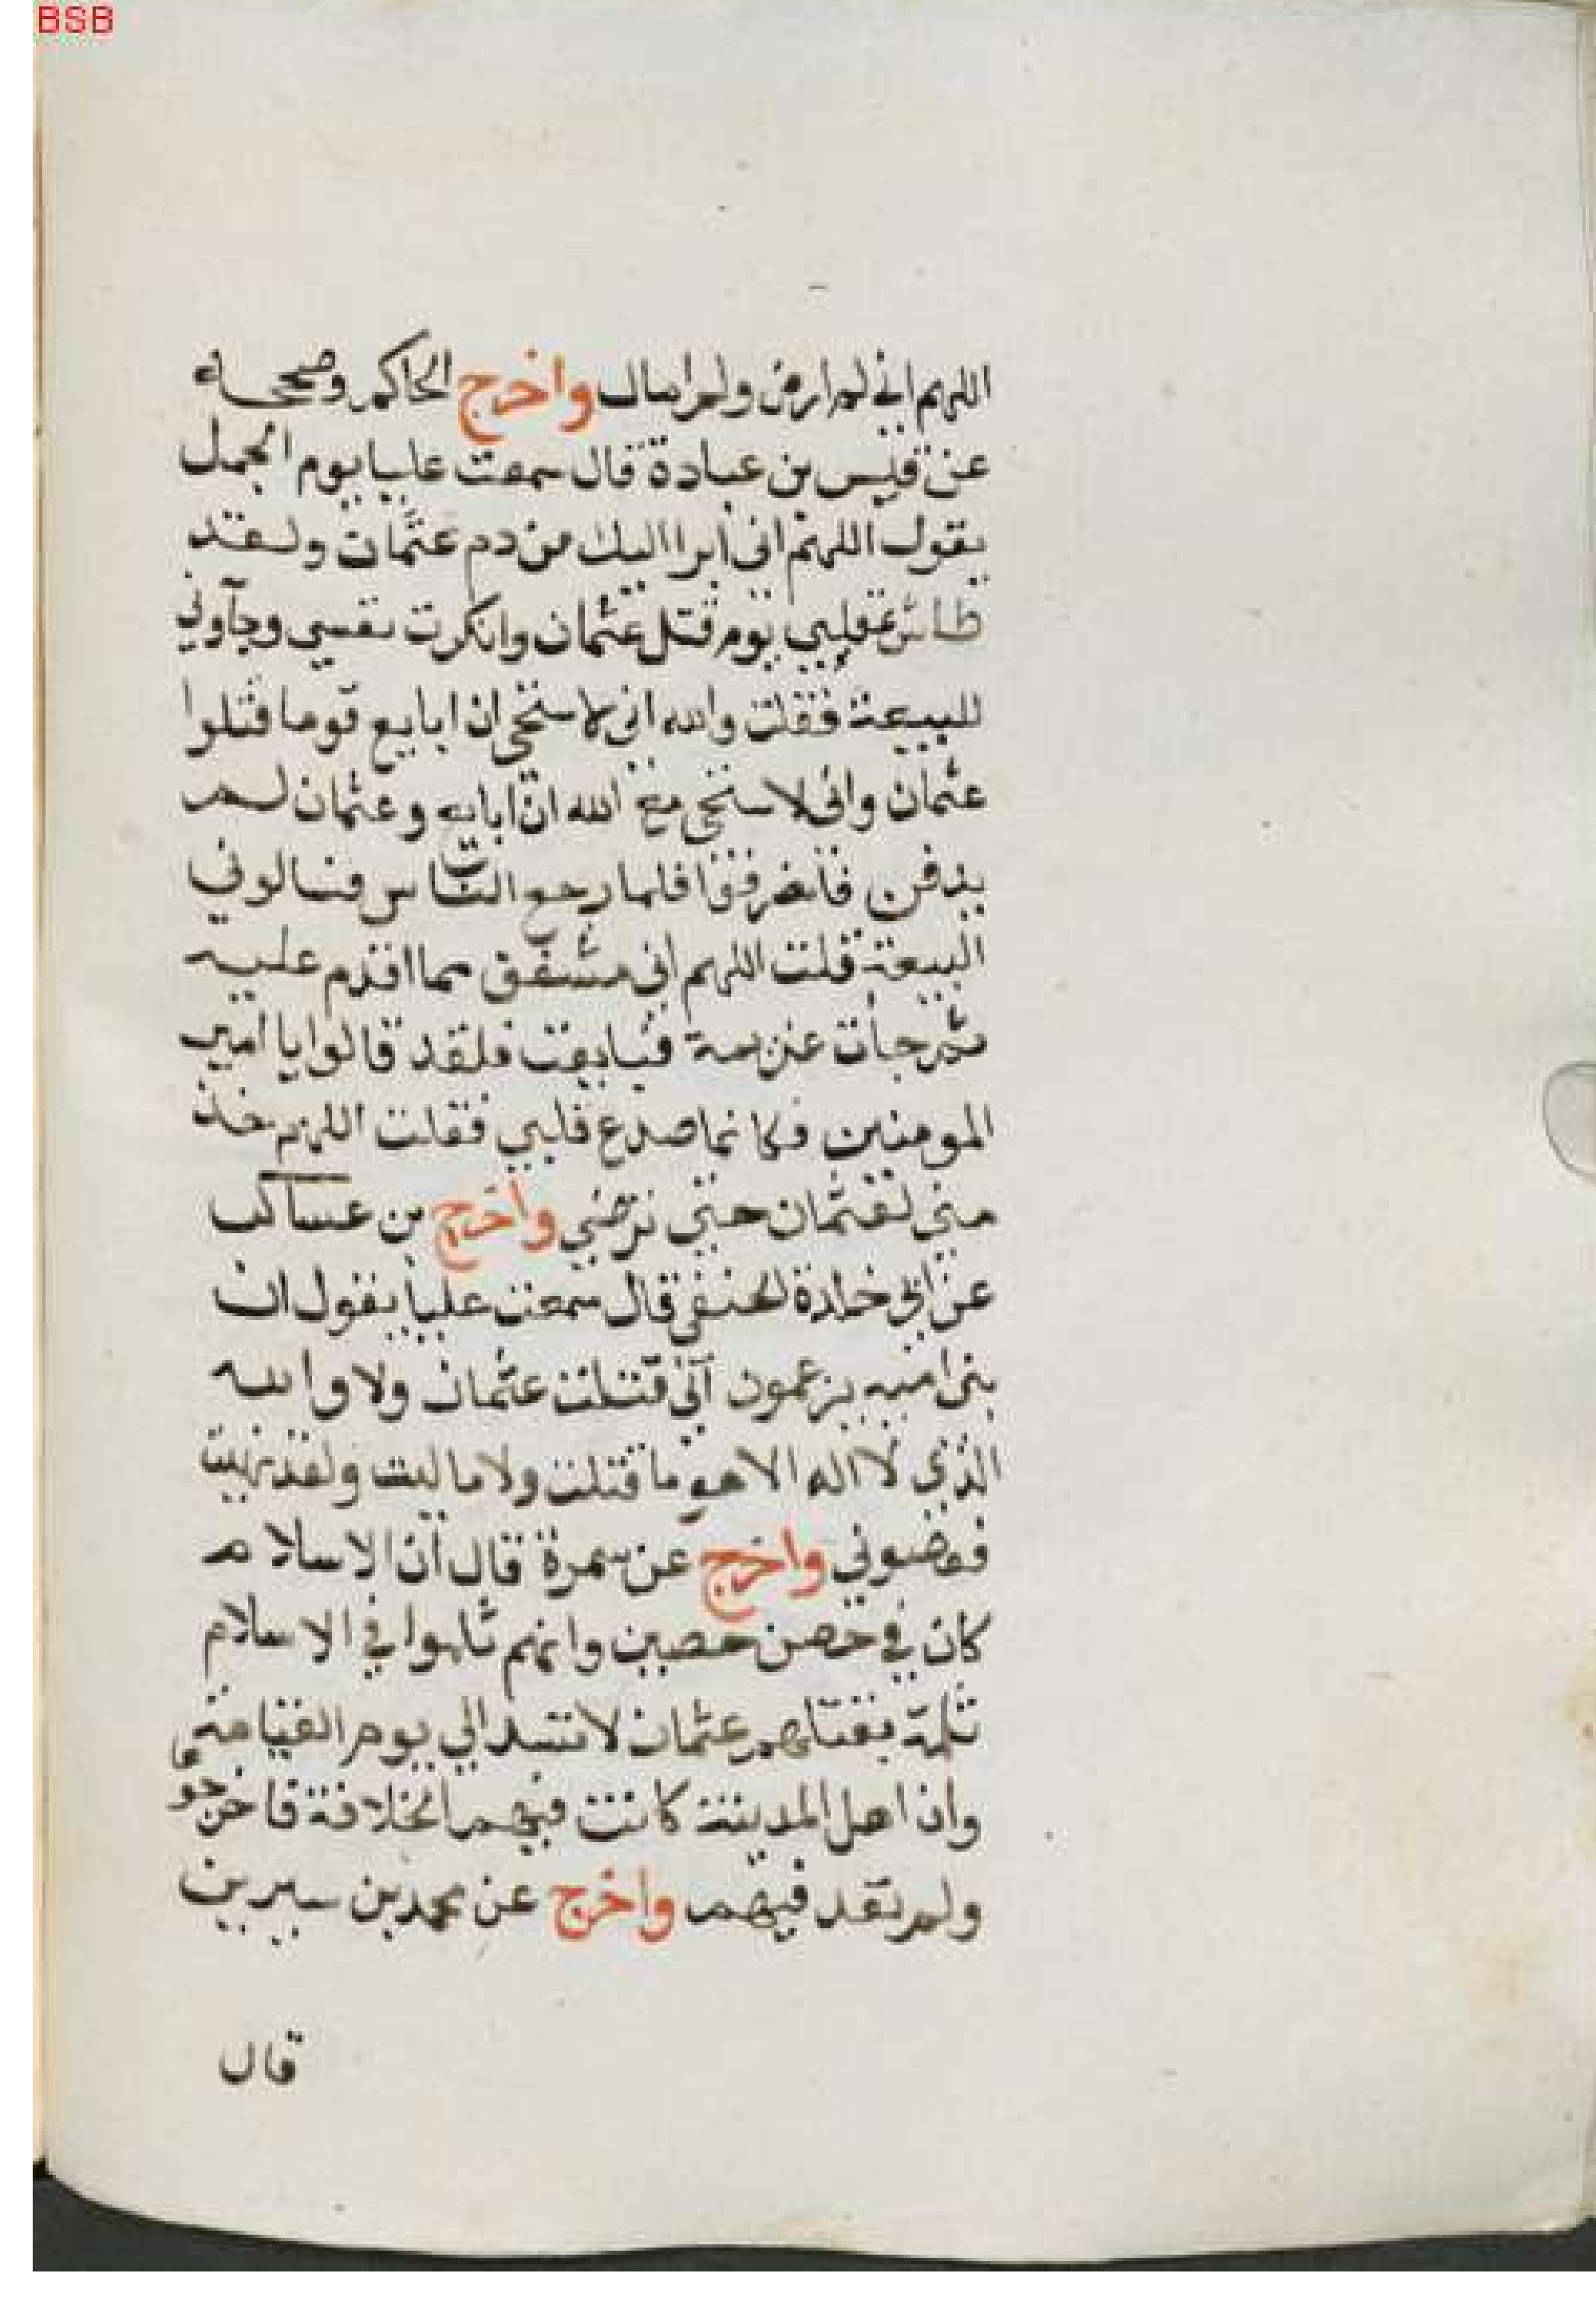 BSB
اللهم اني لم ارض ولم امال واخرج الحاكم وصححه
عن قيس بن عبادة قال سمعت عليا يوم الجمل
يقول اللهم اني ابرا اليك من دم عثمان ولقد
طاش عقلي يوم قتل عثمان وانكرت نفسي وجآوني
للبيعة فقلت والله اني لاستحي ان ابايع قوما قتلوا
عثمان واني لاستحي من الله ان ابايع وعثمان لم
يدفن فانصرفوا فلما رجع الناس فسالوني
البيعة قلت اللهم اني مشفق مما اقدم عليه
ثم جات فبايعت فلقد قالوا يا امير
المومنين فكانما صدع قلبي فقلت اللهم خذ
مني لعثمان حتي ترضي واخرج بن عساكر
عن ابي خلدة الحنفي قال سمعت عليا يقول ان
بني اميه يزعمون اني قتلت عثمان ولا والله
الذي لا اله الا هو ما قتلت ولا ماليت ولقد نهيت
فعصوني واخرج عن سمرة قال ان الاسلام
كان في حصن حصين وانهم ثلموا في الاسلام
ثلمة بقتلهم عثمان لا تسد الي يوم القيامة
وان اهل المدينة كانت فيهم الخلافة فاخرجوها
ولم تعد فيهم واخرج عن محمد بن سيرين
قال